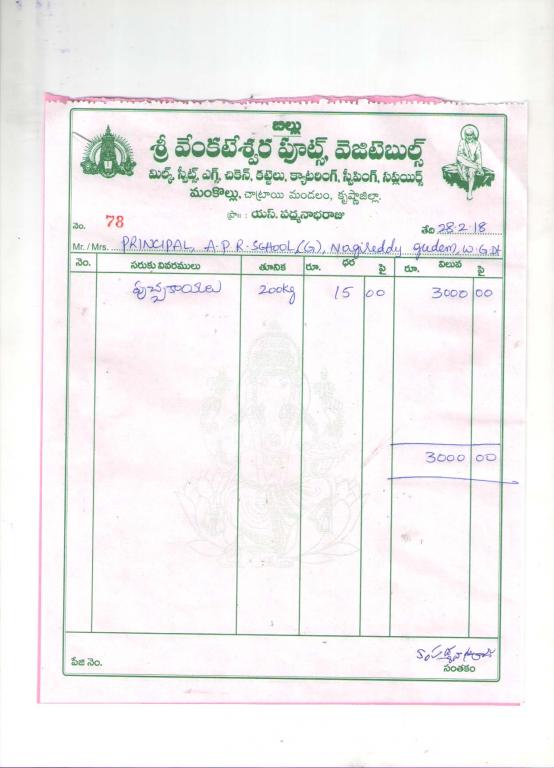 బిల్లు
శ్రీ వేంకటేశ్వర ఫ్రూట్స్, వెజిటెబుల్స్
మిల్క్, స్వీట్స్, ఎగ్స్, చికెన్, కట్టెలు, క్యాటరింగ్, స్వీపింగ్, సప్లయిర్స్
మంకొల్లు, చాట్రాయి మండలం, కృష్ణాజిల్లా.
ప్రొ॥ : యస్. పద్మనాభరాజు
నెం. 78 తేది 28-2-18
Mr. / Mrs. PRINCIPAL, A.P.R. SCHOOL (G), Nagireddy gudem, W.G.Dt
నెం. సరుకు వివరములు తూనిక రూ. ధర పై రూ. విలువ పై
పుచ్చకాయలు 200kg 15 00 3000 00
3000 00
పేజి నెం. సంతకం